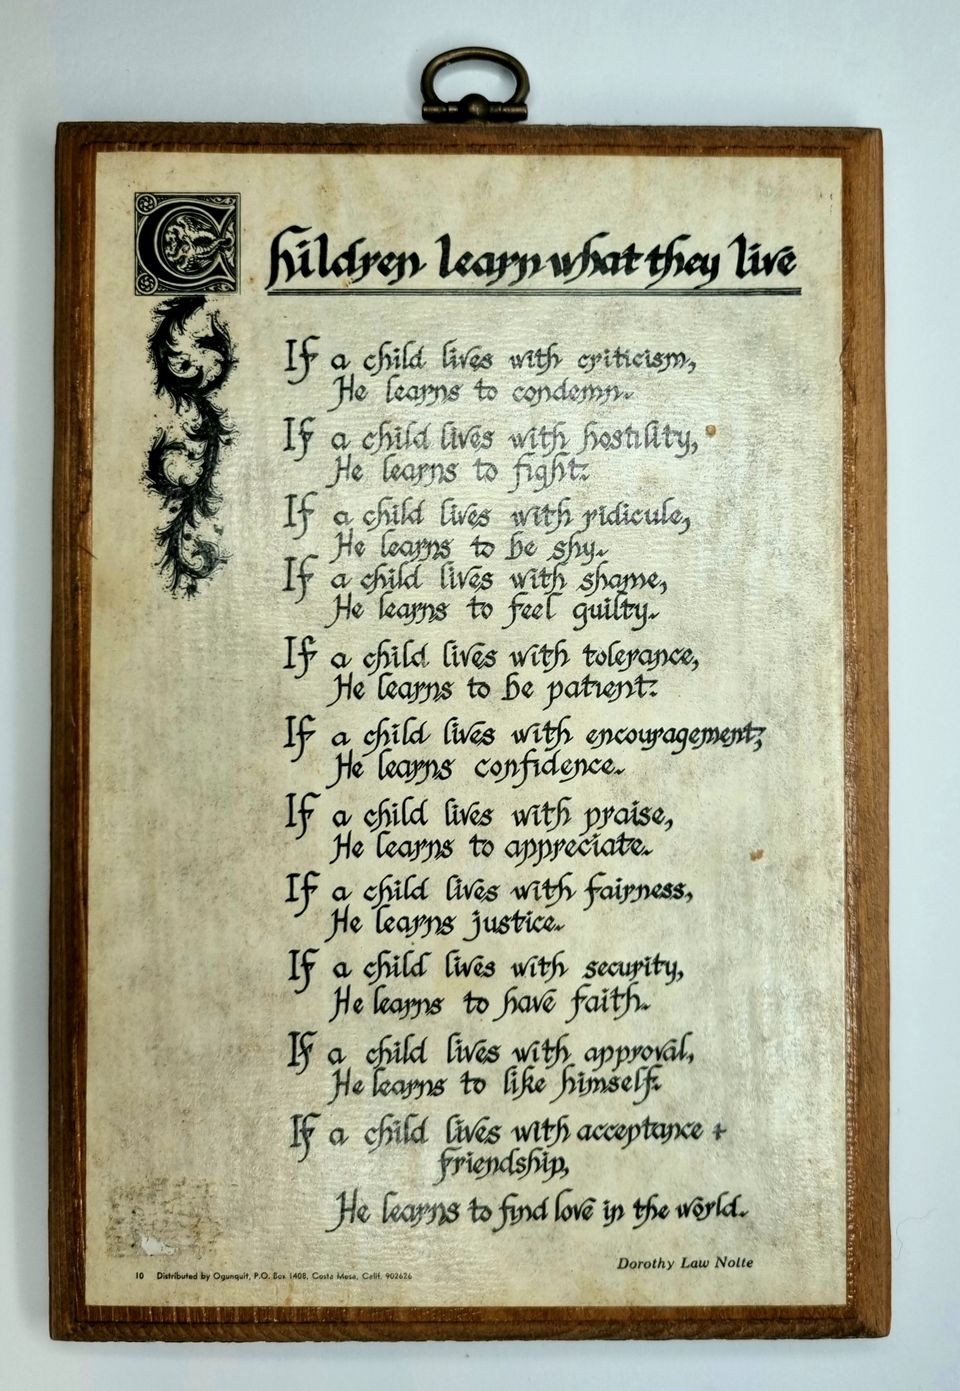 Children learn what they live
If a child lives with criticism,
He learns to condemn.
If a child lives with hostility,
He learns to fight.
If a child lives with ridicule,
He learns to be shy.
If a child lives with shame,
He learns to feel guilty.
If a child lives with tolerance,
He learns to be patient.
If a child lives with encouragement,
He learns confidence.
If a child lives with praise,
He learns to appreciate.
If a child lives with fairness,
He learns justice.
If a child lives with security,
He learns to have faith.
If a child lives with approval,
He learns to like himself.
If a child lives with acceptance +
friendship,
He learns to find love in the world.
Dorothy Law Nolte
10 Distributed by Ogunquit, P.O. Box 1408, Costa Mesa, Calif. 902626